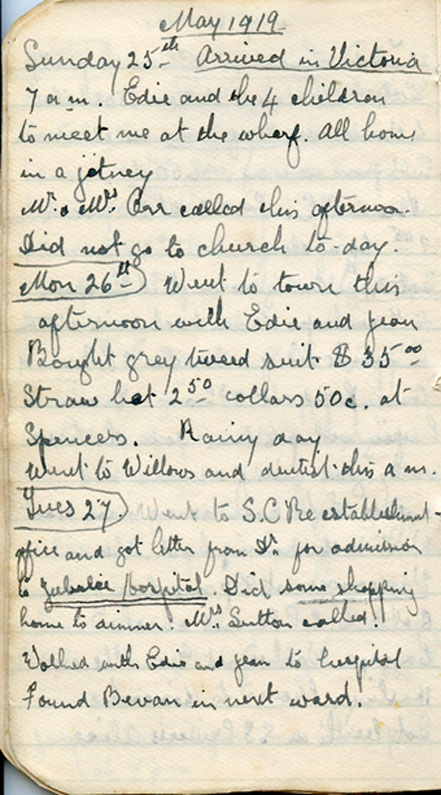 May 1919
Sunday 25th Arrived in Victoria
7 a.m. Edie and the 4 children
to meet me at the wharf. All home
in a jitney
Mr. & Mrs. Orr called this afternoon.
Did not go to church to-day.
Mon 26th) Went to town this
afternoon with Edie and Jean
Bought grey tweed suit. $ 35 00
Straw hat 2 50 collars 50c. at
Spencers. Rainy day
Went to Willows and dentist this a m.
Tues 27. Went to S.C Re establishment
office and got letter from Dr. for admission
to Jubilee hospital. Did some shopping
home to dinner. Mrs. Sutton called.
Walked with Edie and Jean to hospital
Found Bevan in next ward.